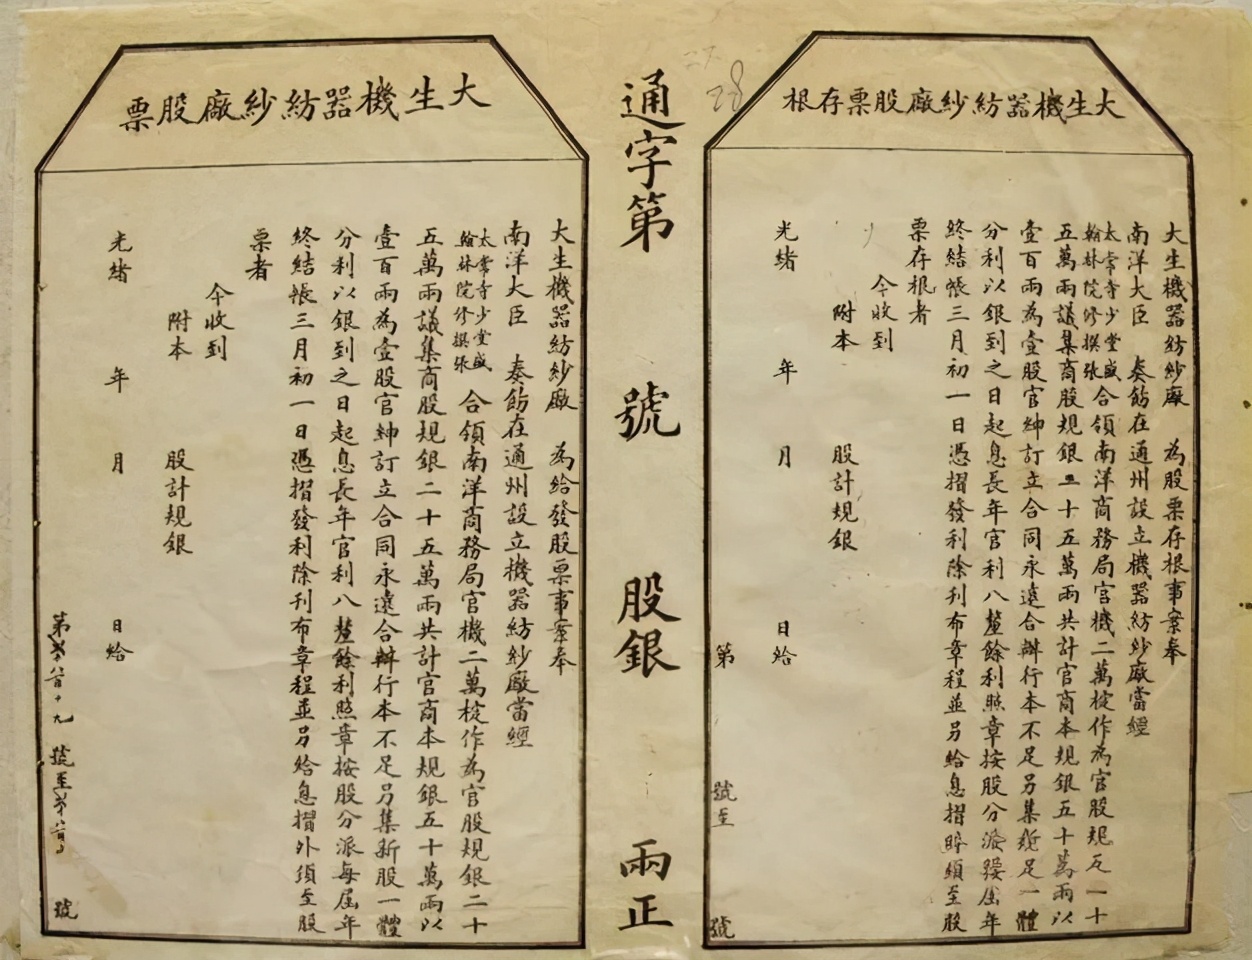 大生機器紡紗廠股票存根
大生機器紡紗廠 為股票存根事案奉
南洋大臣 奏飭在通州設立機器紡紗廠當經
太常寺少堂盛
翰林院修撰張
合領南洋商務局官機二萬棱作為官股規艮二十
五萬兩議集商股規銀二十五萬兩共計官商本規銀五十萬兩以
壹百兩為壹股官紳訂立合同永遠合辦行本不足另集新足一體
分利以銀到之日起息長年官利八釐餘利照章按股分派每屆年
終結帳三月初一日憑摺發利除刊布章程並另給息摺外須至股
票存根者
今收到
附本 股計規銀
光緒 年 月 日給
第 號至 號
28
通字第 號 股銀 兩正
大生機器紡紗廠股票
大生機器紡紗廠 為給發股票事案奉
南洋大臣 奏飭在通州設立機器紡紗廠當經
太常寺少堂盛
翰林院修撰張
合領南洋商務局官機二萬棱作為官股規銀二十
五萬兩議集商股規銀二十五萬兩共計官商本規銀五十萬兩以
壹百兩為壹股官紳訂立合同永遠合辦行本不足另集新股一體
分利以銀到之日起息長年官利八釐餘利照章按股分派每屆年
終結帳三月初一日憑摺發利除刊布章程並另給息摺外須至股
票者
今收到
附本 股計規銀
光緒 年 月 日給
第 號至 號